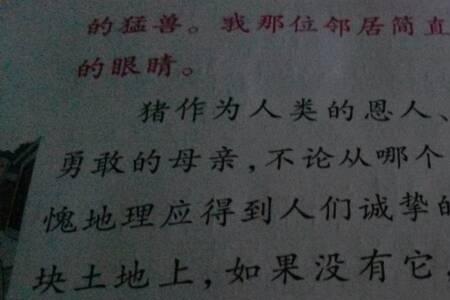 的猛兽。我那位邻居简直
的眼睛。
猪作为人类的恩人、
勇敢的母亲，不论从哪个
愧地理应得到人们诚挚的
块土地上，如果没有它，